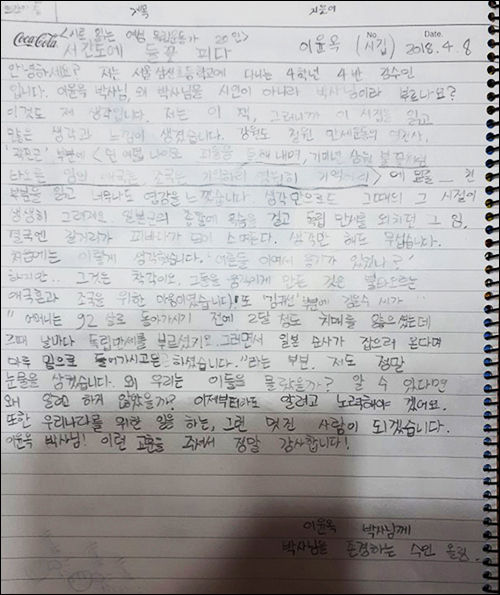 제목 지은이
Coca-Cola <시로 읽는 여성 독립운동가 20인> (No. Date.
서간도에 들꽃 피다 이윤옥 (시집) 2018. 4. 8
안녕하세요? 저는 서울 삼선초등학교에 다니는 4학년 4반 김수인
입니다. 이윤옥 박사님, 왜 박사님을 시인이 아니라 박사님이라 부르냐요?
이것도 제 생각입니다. 저는 이 책, 그러니까 이 시집을 읽고
많은 생각과 느낌이 생겼습니다. 강원도 철원 만세운동의 여전사,
'곽진근' 부분에 <던 여덟 나이로 피울음 토해내며, 기미년 삼월
타오른 임의 애국혼 조국은 기억하리 영원히 기억하리> 에
부분을 읽고 너무나도 영감을 느꼈습니다. 생각만으로도 그때의 그 시절이
생생히 그려져요. 일본군의 총칼에 목숨을 걸고 독립 만세를 외치던 그 임.
결국엔 길거리가 피바다가 되어 쓰러든다. 생각만 해도 무섭습니다.
처음에는 이렇게 생각했습니다. '이들은 어디서 용기가 있었나?'
하지만.. 그것은 착각이요, 그들을 움직이게 만든 것은 불타오르는
애국혼과 조국을 위한 마음이었습니다. 또 '김귀선' 부분에 김운수 씨가
"어머니는 92 살로 돌아가시기 전에 2달 정도 치매를 앓으셨는데
그때 날마다 독립만세를 부르셨지요. 그러면서 일본 순사가 잡으러 온다며
마루 밑으로 들어가시고는 하셨습니다." 라는 부분. 저도 정말
눈물을 삼켰습니다. 왜 우리는 이들을 몰랐을까? 알 수 있다면
왜 알려 하지 않았을까? 이제부터라도 알려고 노력해야 겠어요.
또한 우리나라를 위한 일을 하는, 그런 멋진 사람이 되겠습니다.
이윤옥 박사님! 이런 교훈을 주셔서 정말 감사합니다!
이윤옥 박사님께
박사님을 존경하는 수인 올림.